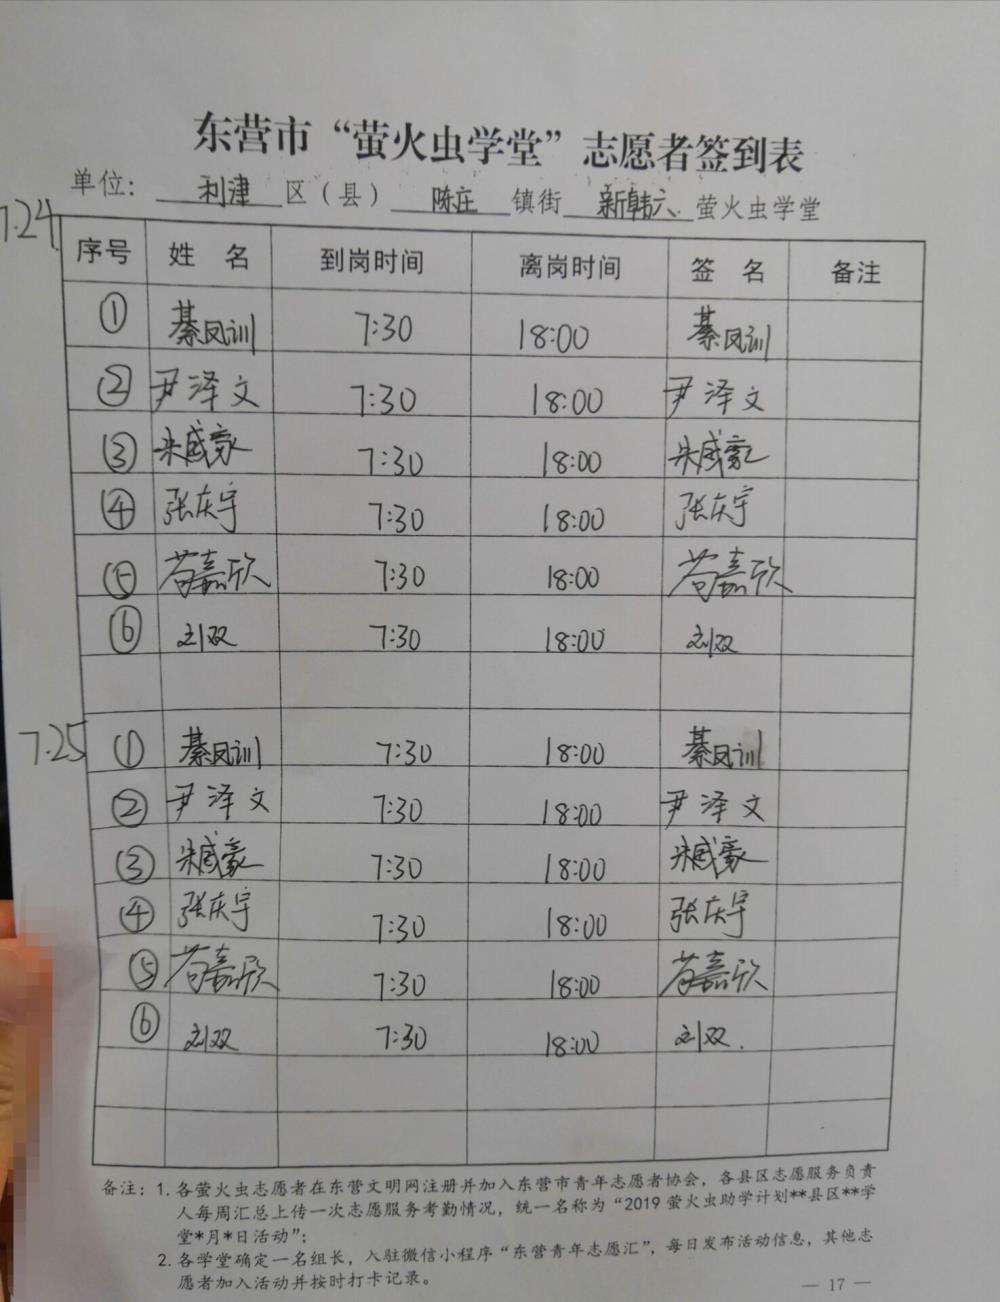 东营市“萤火虫学堂”志愿者签到表
单位： 利津 区（县） 陈庄 镇街 新韩六 萤火虫学堂
7.24
序号 姓名 到岗时间 离岗时间 签名 备注
① 綦凤训 7:30 18:00 綦凤训
② 尹泽文 7:30 18:00 尹泽文
③ 宋威豪 7:30 18:00 宋威豪
④ 张庆宇 7:30 18:00 张庆宇
⑤ 苟嘉欣 7:30 18:00 苟嘉欣
⑥ 刘双 7:30 18:00 刘双
7.25
① 綦凤训 7:30 18:00 綦凤训
② 尹泽文 7:30 18:00 尹泽文
③ 宋威豪 7:30 18:00 宋威豪
④ 张庆宇 7:30 18:00 张庆宇
⑤ 苟嘉欣 7:30 18:00 苟嘉欣
⑥ 刘双 7:30 18:00 刘双.
备注：1. 各萤火虫志愿者在东营文明网注册并加入东营市青年志愿者协会，各县区志愿服务负责
人每周汇总上传一次志愿服务考勤情况，统一名称为“2019 萤火虫助学计划**县区**学
堂*月*日活动”；
2. 各学堂确定一名组长，入驻微信小程序“东营青年志愿汇”，每日发布活动信息，其他志
愿者加入活动并按时打卡记录。
— 17 —